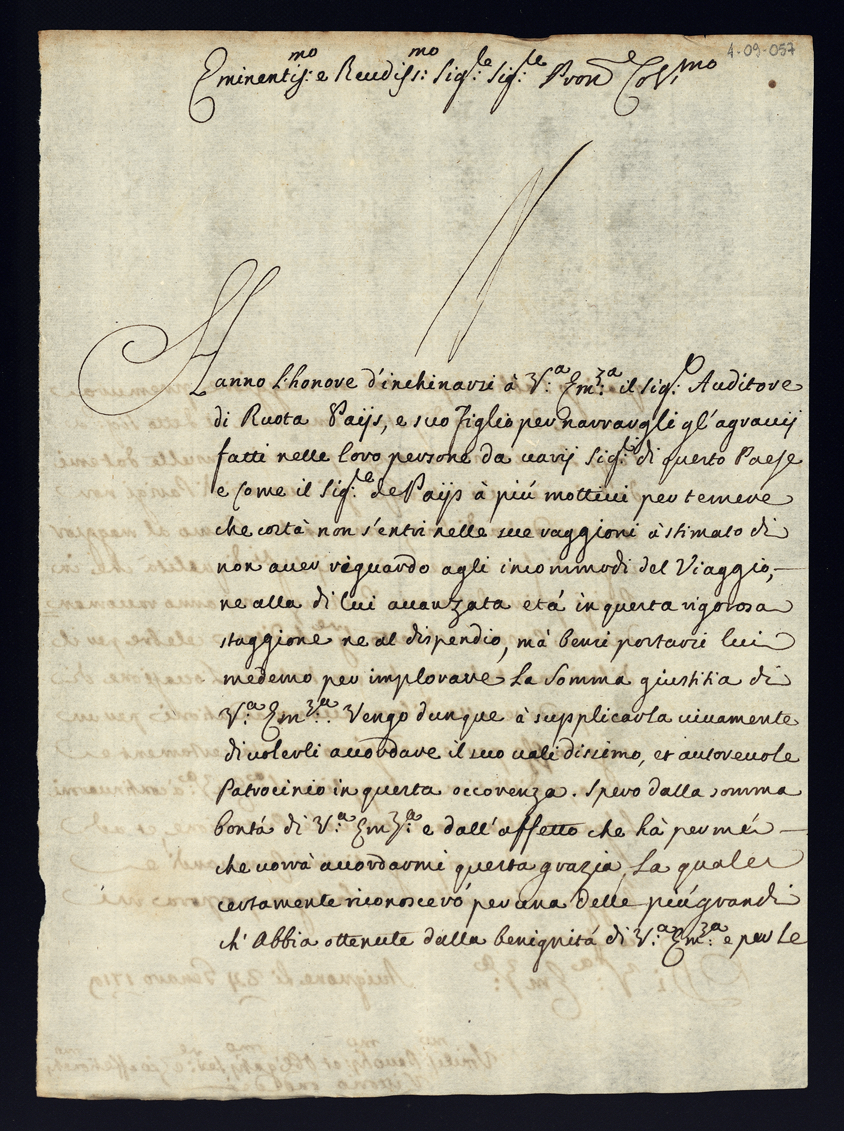 4-09-057
Eminentis:mo e Reudiss:mo Sig:re Sig:re Pron e Col:mo
Hanno l'honore d'inchinarsi à V:a Em:za il Sig:r Auditore
di Ruota Paijs, e suo figlio per narrargli gl'agravij
fatti nelle loro persone da varij Sig:ri di questo Paese
e Come il Sig:re de Paijs à più mottivi per temere
che costà non s'entri nelle sue raggioni à stimato di
non aver riguardo agli incommodi del Viaggio,
ne alla di lui avanzata età in questa rigorosa
staggione ne al dispendio, mà bensi portarsi lui
medemo per implorare La Somma giustitia di
V:a Em:za. Vengo dunque à supplicarla vivamente
di volerli accordare il suo validissimo, et autorevole
Patrocinio in questa occorenza. Spero dalla somma
bontà di V:a Em:za e dall'affetto che hà per mé
che vorrà accordarmi questa grazia, La quale
certamente riconoscerò per una delle più grandi
ch'Abbia ottenute dalla benignità di V:a Em:za e per le